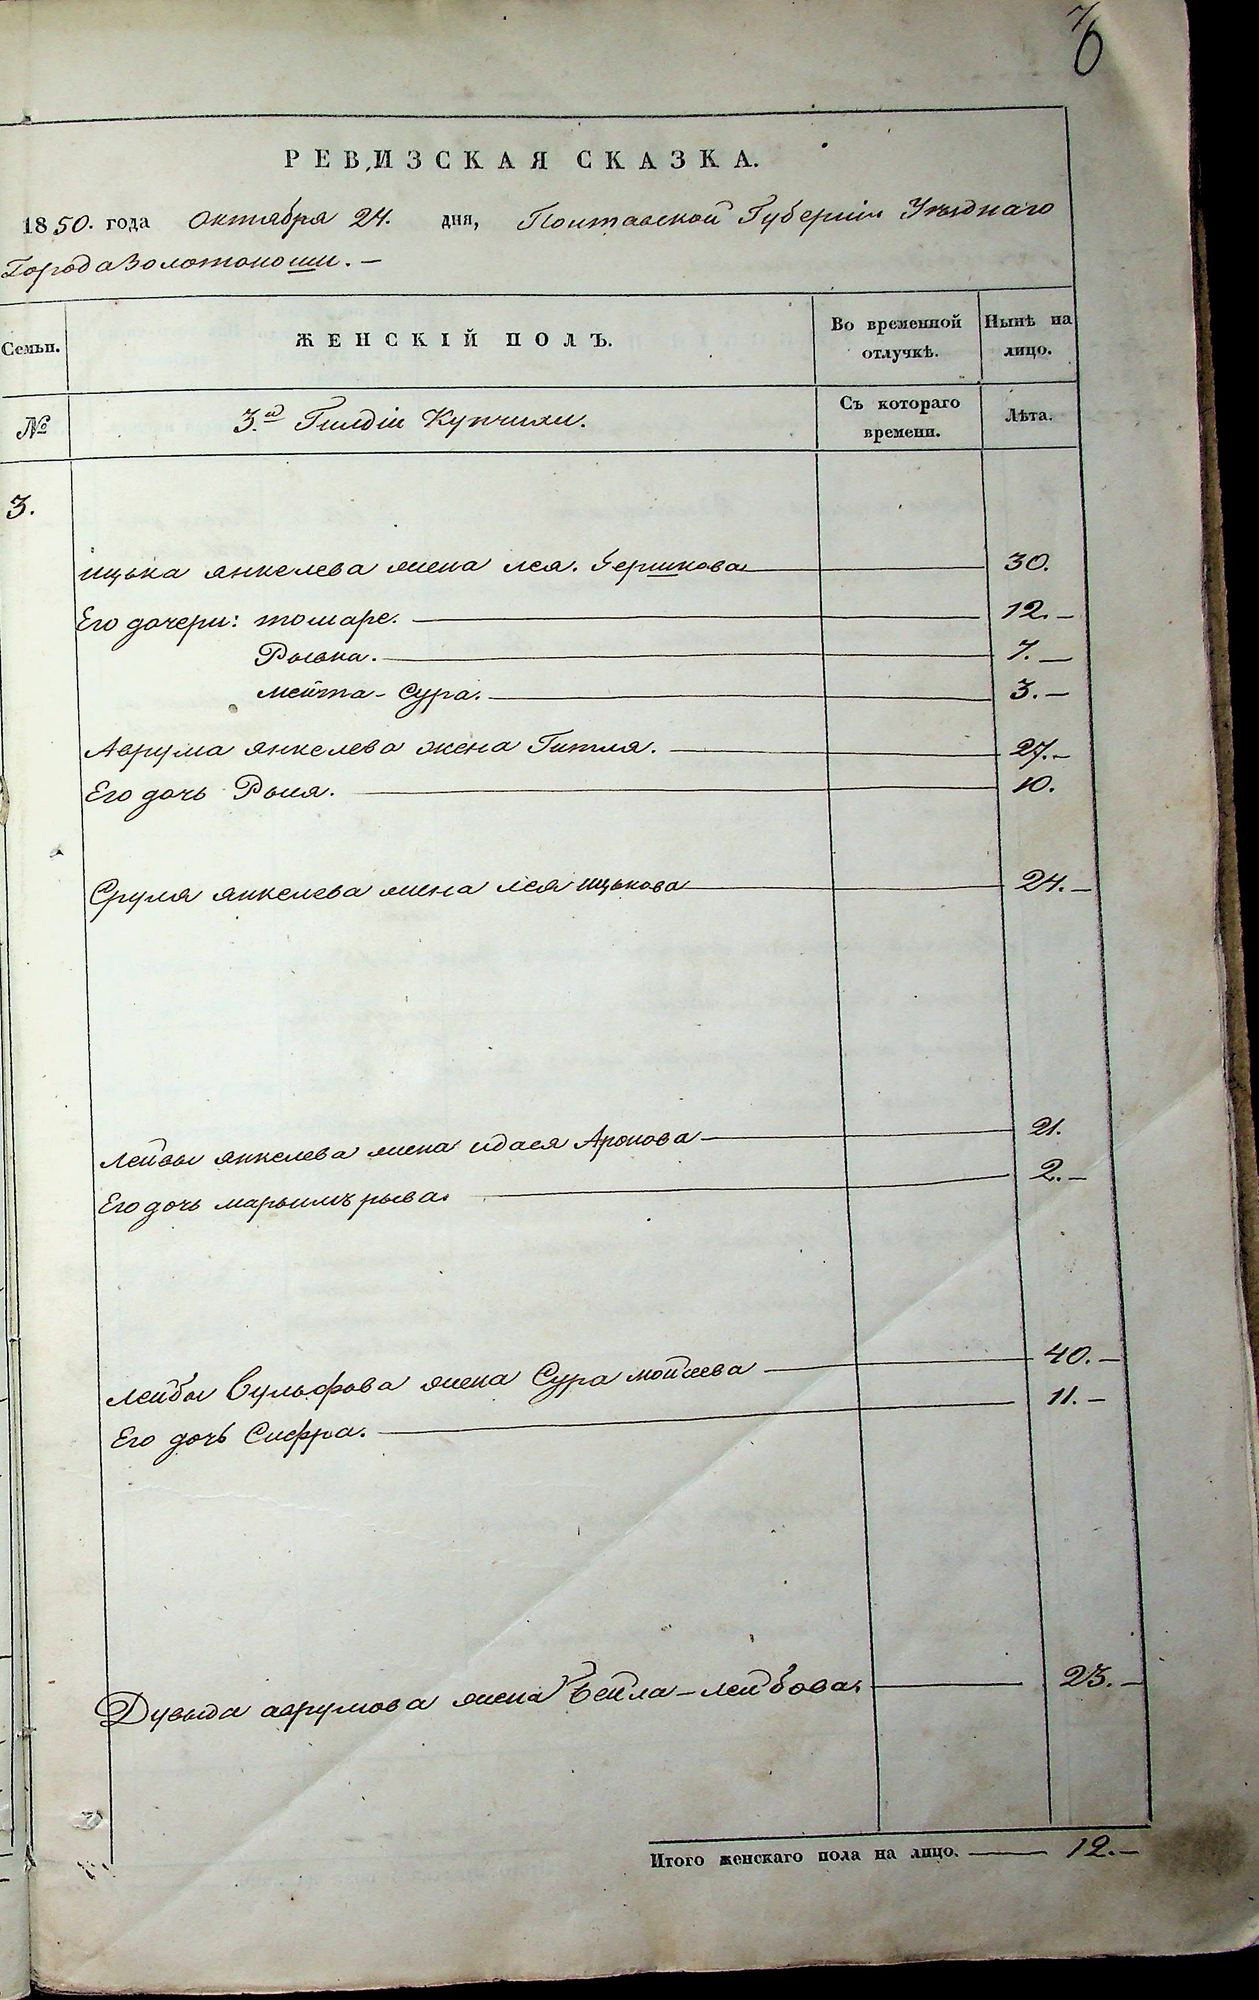 6
РЕВИЗСКАЯ СКАЗКА.
1850. года Октября 24. дня, Полтавской Губерніи Уѣзднаго
Города Золотоноши. —
Семьи. ЖЕНСКІЙ ПОЛЪ. Во временной отлучкѣ. Нынѣ на лицо.
№ 3.й Гилдіи Купчихи. Съ котораго времени. Лѣта.
3.
ицька янкелева жена лея. Гершкова 30.
Его дочери: томаре. 12. —
Рывка. 7. —
мейта-Сура. 3. —
Аврума янкелева жена Гитля. 27. —
Его дочь Рыся. 10.
Сруля янкелева жена лея ицькова 24. —
Лейвы янкелева жена идася Аронова 21.
Его дочь марьимъ рыва. 2. —
Лейбы Вульфова жена Сура мойсеева 40. —
Его дочь Сифра. 11. —
Дувыда аврумова жена Бейла-лейбова. 23. —
Итого женскаго пола на лицо. 12. —